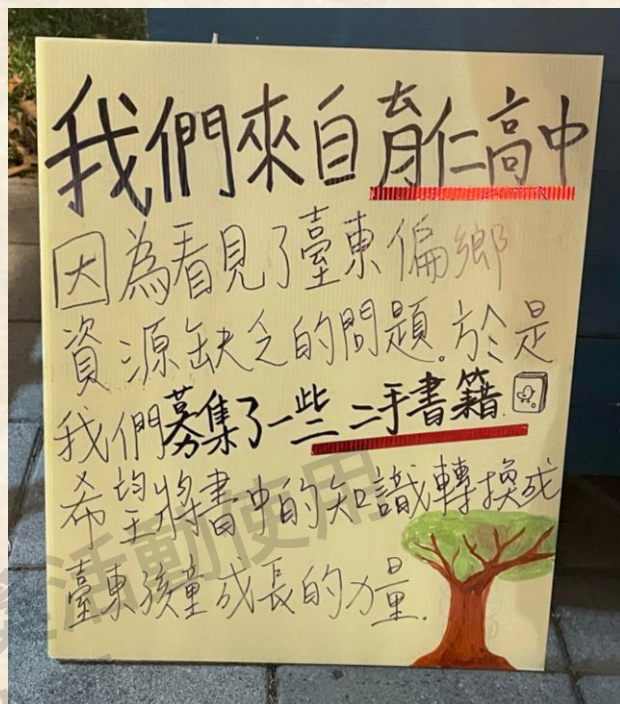 我們來自育仁高中
因為看見了臺東偏鄉
資源缺乏的問題。於是
我們募集了一些二手書籍.
希望將書中的知識轉換成
臺東孩童成長的力量.
活動使用